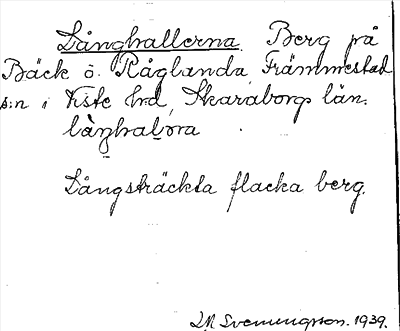 Långhallerna. Berg på
Bäck o. Råglanda, Främmestad
s:n i Viste hrd, Skaraborgs län.
Långsträckta flacka berg.
Svenungson. 1939.